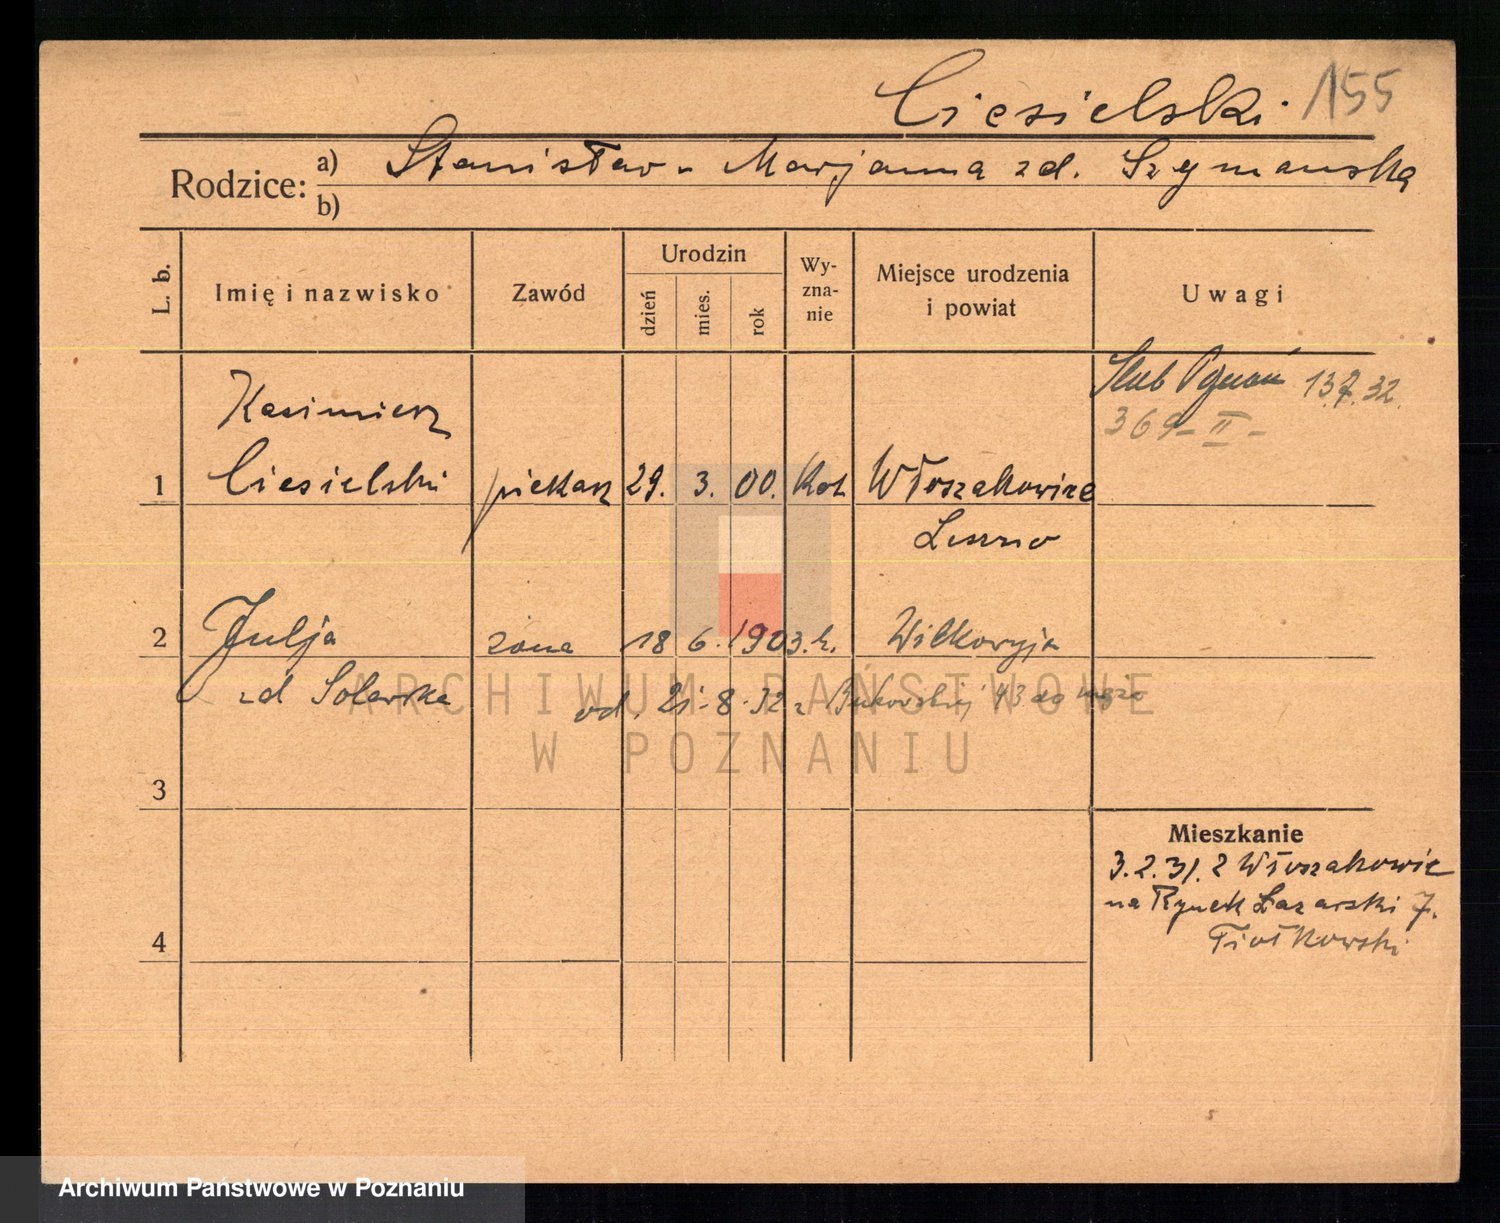 Ciesielski. 155
Rodzice: a) Stanisław - Marjanna zd. Szymańska
b)
L. b. Imię i nazwisko Zawód Urodzin dzień mies. rok Wy-zna-nie Miejsce urodzenia i powiat Uwagi
Ślub Poznań 13.7.32.
369 - II -
Kasimierz
1 Ciesielski piekarz 29. 3. 00. Kat Włoszakowice
Leszno
2 Julja żona 18 6. 1903. k. Wilkowyja
zd Solarska od. 21.8.32 z Bukowskiej 43 do męża
3
Mieszkanie
3.2.31. z Włoszakowic
na Rynek Łazarski 7.
4 Fiołkowski
ARCHIWUM PAŃSTWOWE
W POZNANIU
Archiwum Państwowe w Poznaniu